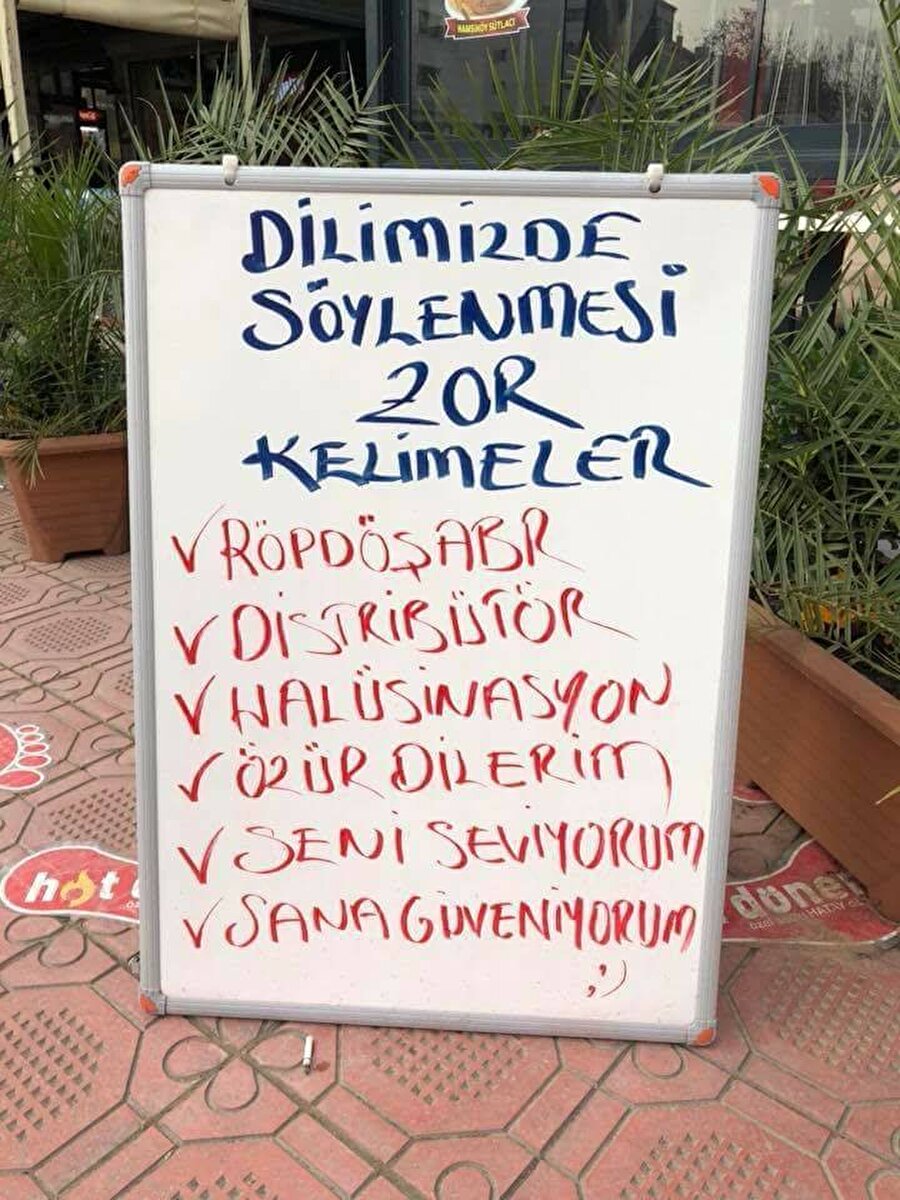 HAMSİKÖY SÜTLACI
DİLİMİZDE
SÖYLENMESİ
ZOR
KELİMELER
✓ RÖPDÖŞABR
✓ DİSTRİBÜTÖR
✓ HALÜSİNASYON
✓ ÖZÜR DİLERİM
✓ SENİ SEVİYORUM
✓ SANA GÜVENİYORUM
;)
hot
döner